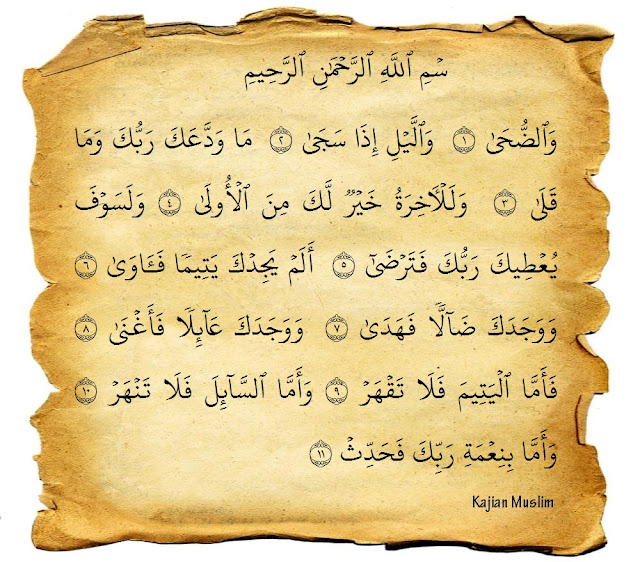 سْمِ ٱللَّهِ ٱلرَّحْمَٰنِ ٱلرَّحِيمِ
وَٱلضُّحَىٰ ١ وَٱلَّيْلِ إِذَا سَجَىٰ ٢ مَا وَدَّعَكَ رَبُّكَ وَمَا
قَلَىٰ ٣ وَلَلْأَخِرَةُ خَيْرٌ لَّكَ مِنَ ٱلْأُولَىٰ ٤ وَلَسَوْفَ
يُعْطِيكَ رَبُّكَ فَتَرْضَىٰٓ ٥ أَلَمْ يَجِدْكَ يَتِيمًا فَـَٔاوَىٰ ٦
وَوَجَدَكَ ضَآلًّا فَهَدَىٰ ٧ وَوَجَدَكَ عَآئِلًا فَأَغْنَىٰ ٨
فَأَمَّا ٱلْيَتِيمَ فَلَا تَقْهَرْ ٩ وَأَمَّا ٱلسَّآئِلَ فَلَا تَنْهَرْ ١٠
وَأَمَّا بِنِعْمَةِ رَبِّكَ فَحَدِّثْ ١١
Kajian Muslim